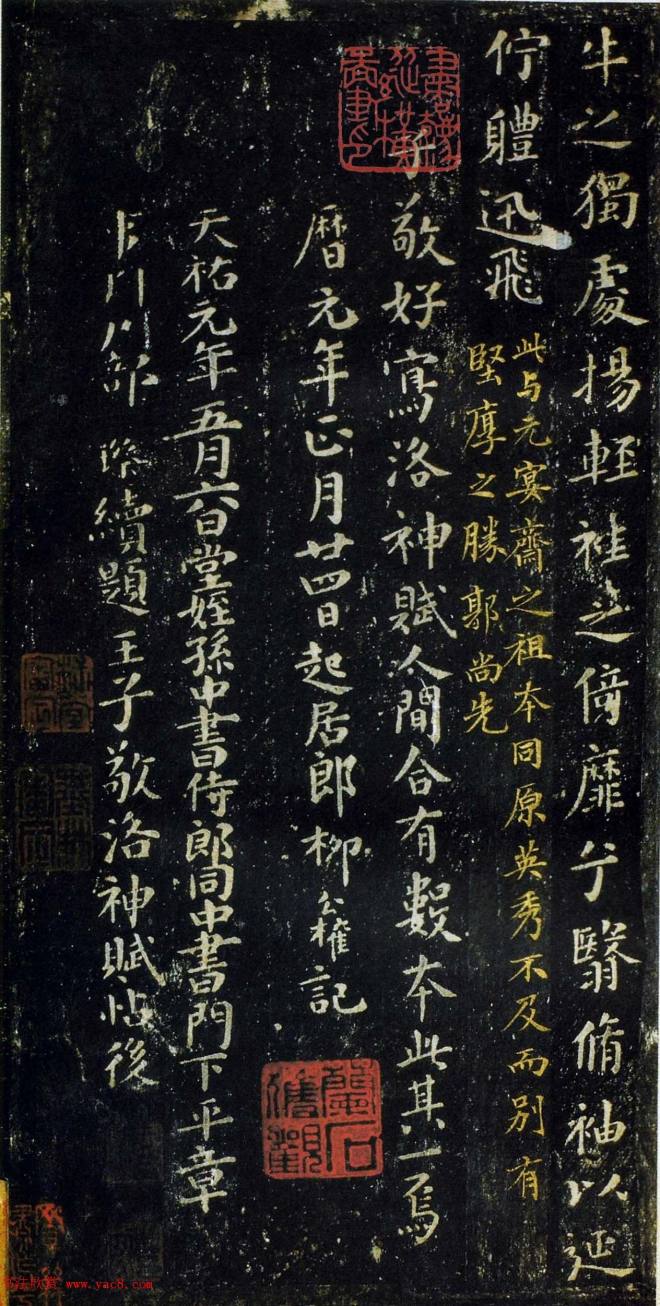 牛之獨處揚輕袿之倚靡兮翳脩袖以延
佇軆迅飛
此与元宴齋之祖本同原英秀不及而别有
堅厚之勝郭尚先
子敬好寫洛神賦人間合有數本此其一焉
曆元年正月廿四日起居郎柳公權記
天祐元年五月六日堂姪孫中書侍郎同中書門下平章
事
部
續題王子敬洛神賦帖後
書法欣賞 www.yac8.com